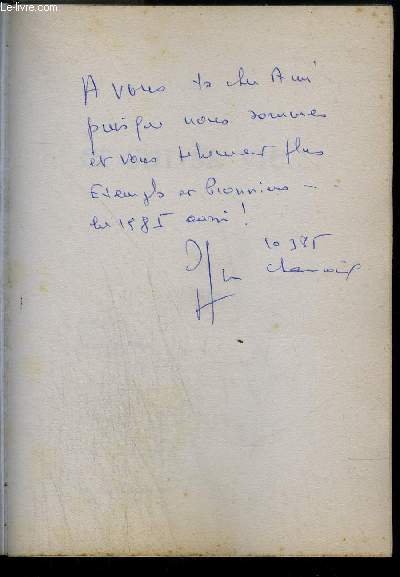 Le-livre.com
A vous très cher Ami
puisque nous sommes
et vous tellement plus
Exemple et Pionniers
en 1985 aussi !
10 3 85